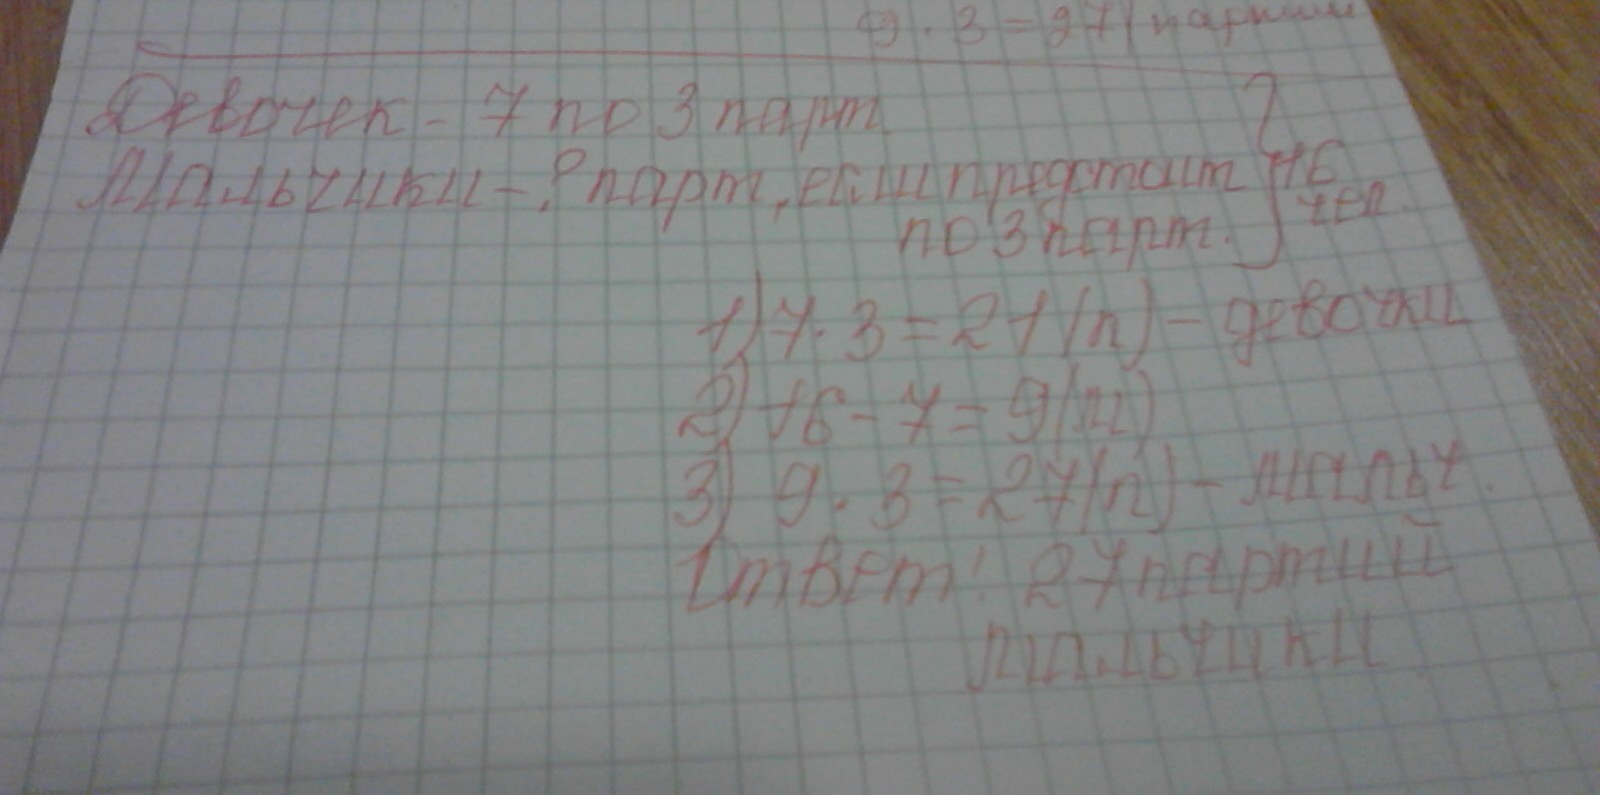 9 · 3 = 27 (партии
Девочек - 7 по 3 парт.
Мальчики - ? парт, если предстоит
по 3 парт.
16
чел.
1) 7 · 3 = 21 (п) - девочки
2) 16 - 7 = 9 (м)
3) 9 · 3 = 27 (п) - мальч.
Ответ: 27 партий
мальчики